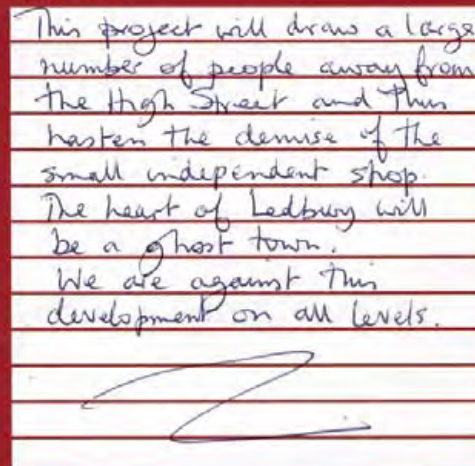 This project will draw a large
number of people away from
the High Street and thus
hasten the demise of the
small independent shop.
The heart of Ledbury will
be a ghost town.
We are against this
development on all levels.